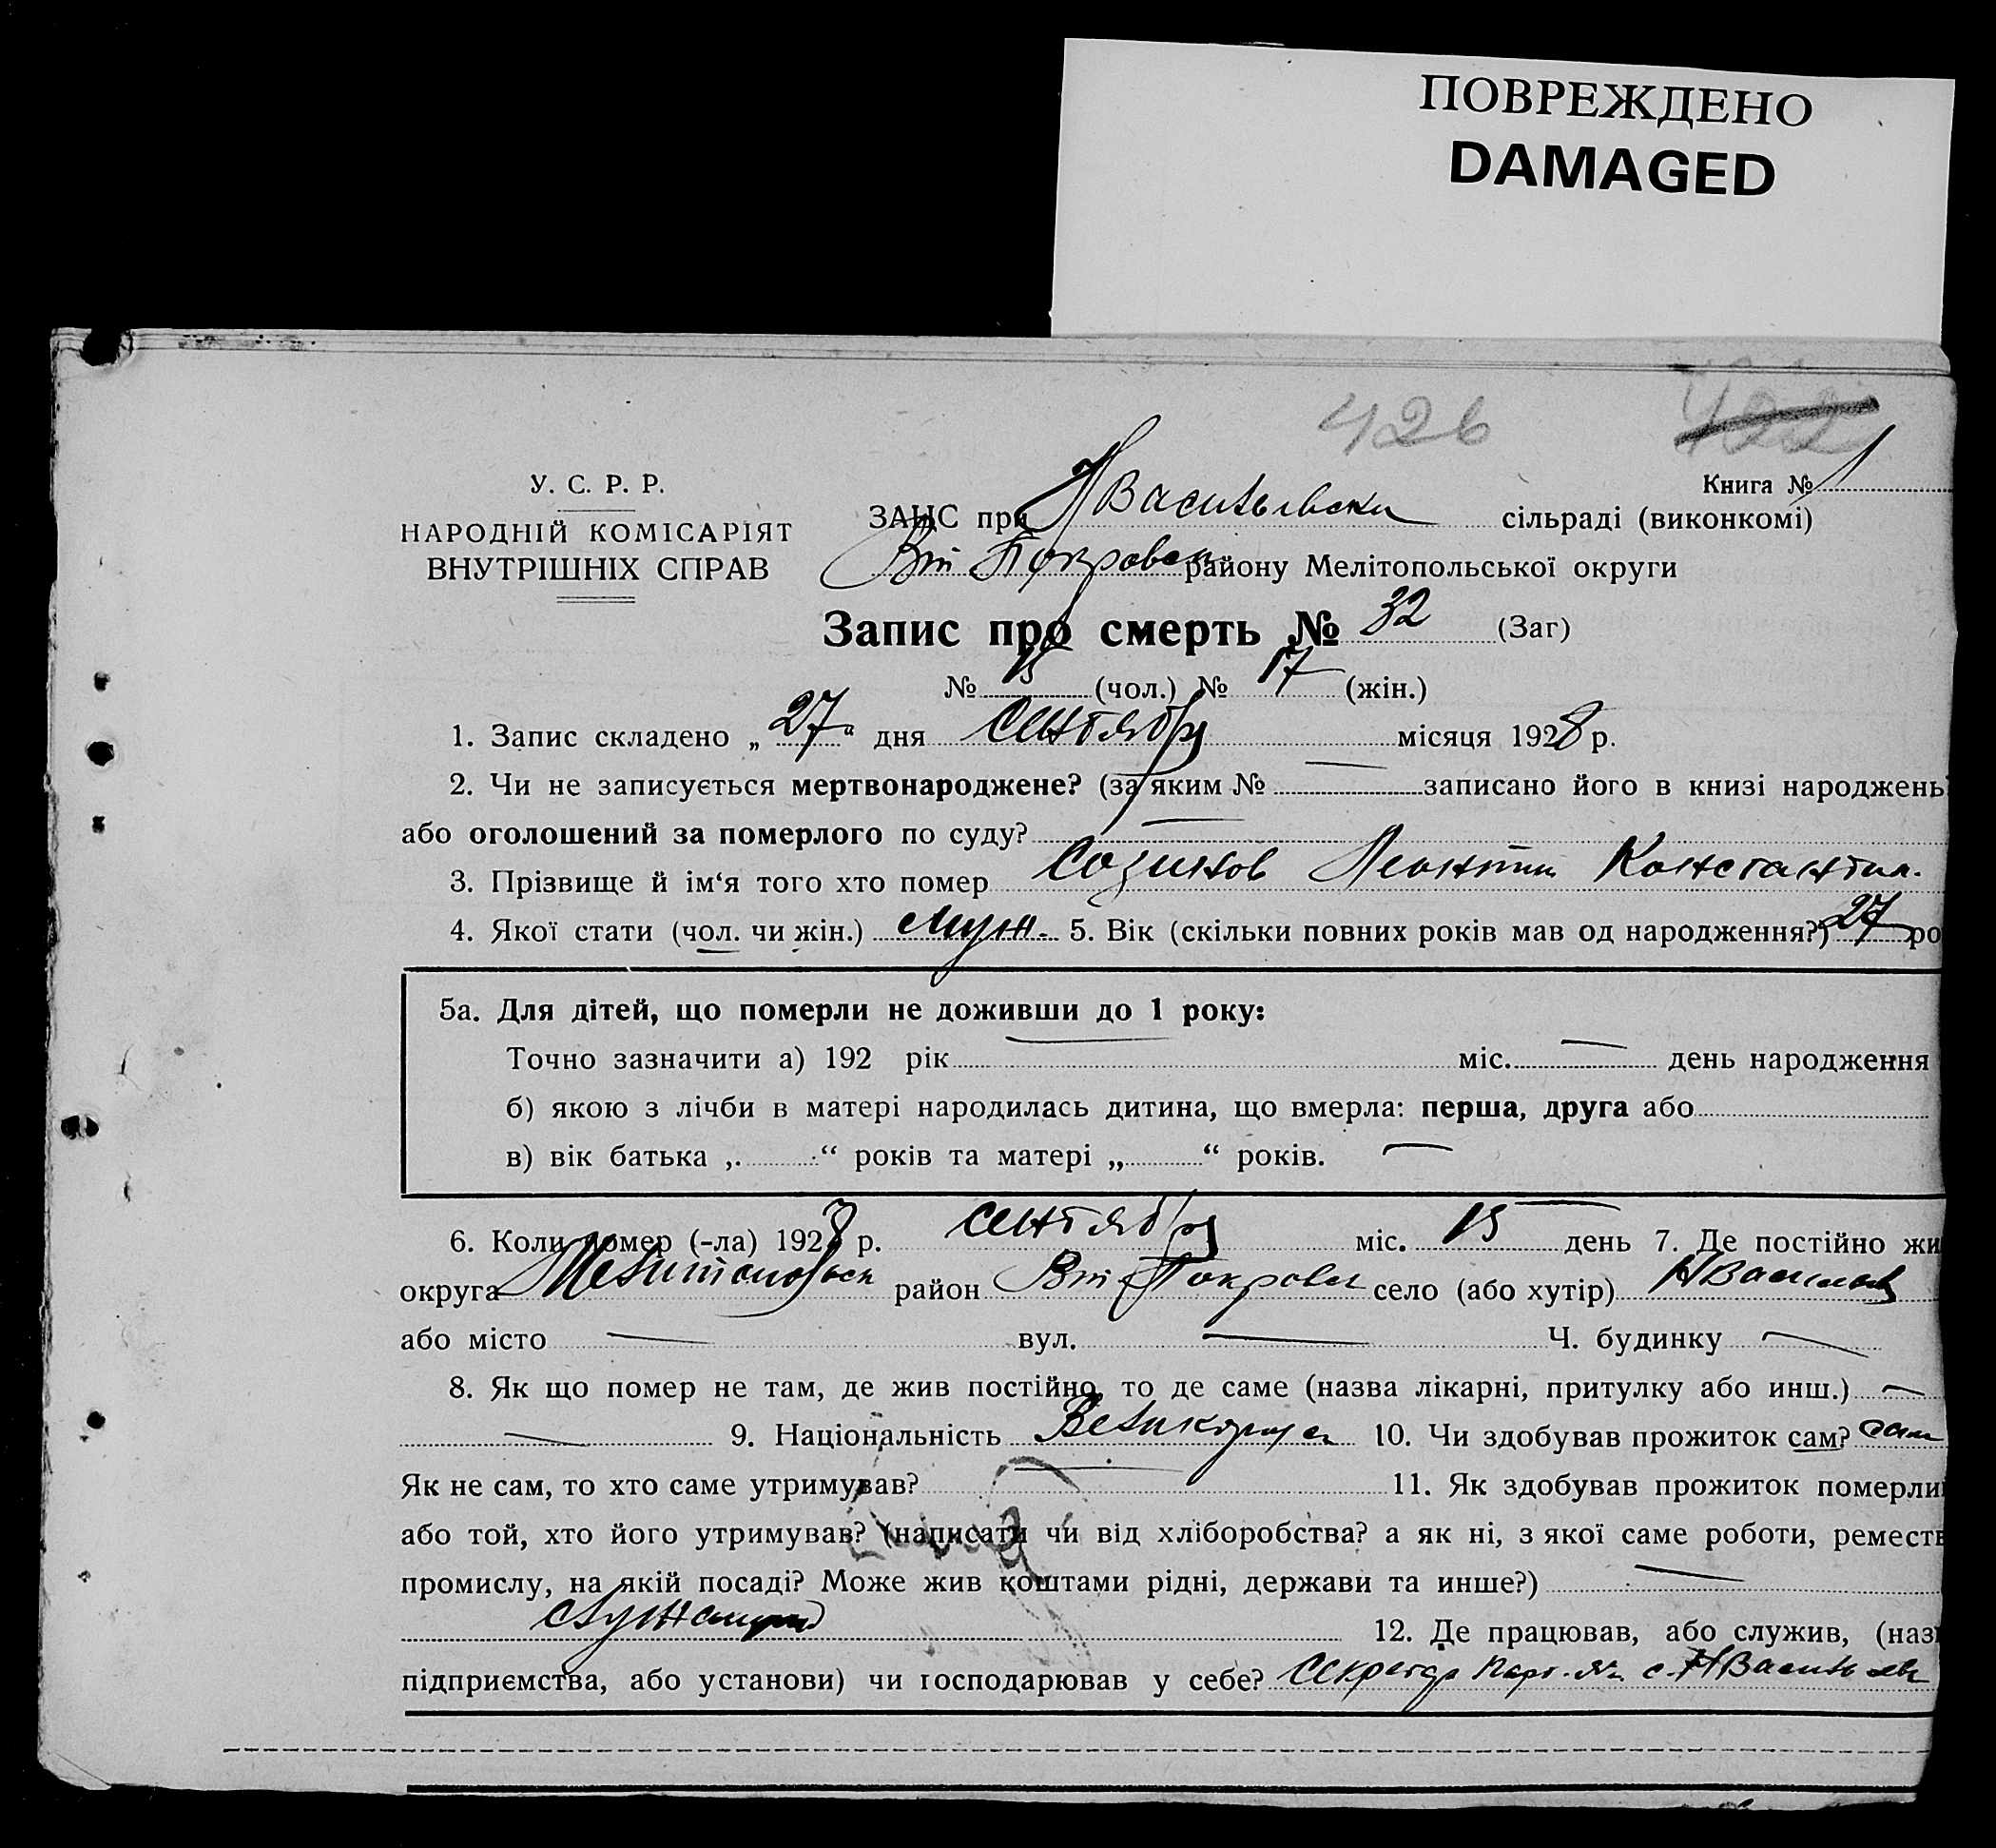 ПОВРЕЖДЕНО
DAMAGED
426
422
У. С. Р. Р.
НАРОДНІЙ КОМІСАРІЯТ
ВНУТРІШНІХ СПРАВ
Книга № 1
ЗАНС при НВасильевськ сільраді (виконкомі)
Вт Покровск району Мелітопольської округи
Запис про смерть № 32 (Заг)
№ 15 (чол.) № 17 (жін.)
1. Запис складено „27“ дня Сентября місяця 1928 р.
2. Чи не записується мертвонароджене? (за яким № — записано його в книзі народжень
або оголошений за померлого по суду? —
3. Прізвище й ім‘я того хто помер Созинов Леонтий Константин.
4. Якої стати (чол. чи жін.) муж. 5. Вік (скільки повних років мав од народження?) 27 ро
5а. Для дітей, що померли не доживши до 1 року:
Точно зазначити а) 192 рік — міс. — день народження
б) якою з лічби в матері народилась дитина, що вмерла: перша, друга або
в) вік батька „ “ років та матері „ “ років. —
6. Коли помер (-ла) 1928 р. Сентября міс. 15 день 7. Де постійно жи
округа Мелитопольск район Вт Покровск село (або хутір) НВасильев
або місто — вул. — Ч. будинку —
8. Як що помер не там, де жив постійно, то де саме (назва лікарні, притулку або инш.) —
— 9. Національність Великорусс 10. Чи здобував прожиток сам? сам
Як не сам, то хто саме утримував? — 11. Як здобував прожиток померли
або той, хто його утримував? (написати чи від хліборобства? а як ні, з якої саме роботи, реместв
промислу, на якій посаді? Може жив коштами рідні, держави та инше?) —
служащий 12. Де працював, або служив, (наз
підприємства, або установи) чи господарював у себе? Секретарь Парт. яч. с. НВасильевк